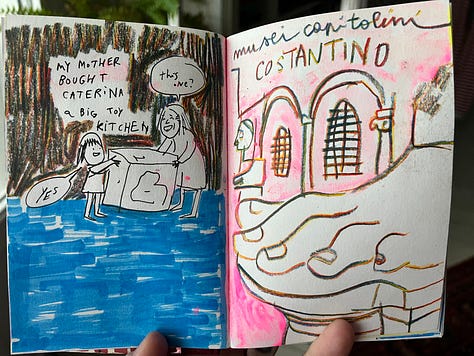 MY MOTHER
BOUGHT
CATERINA
a BIG TOY
KITCHEN
this
one?
YES
musei capitolini
COSTANTINO